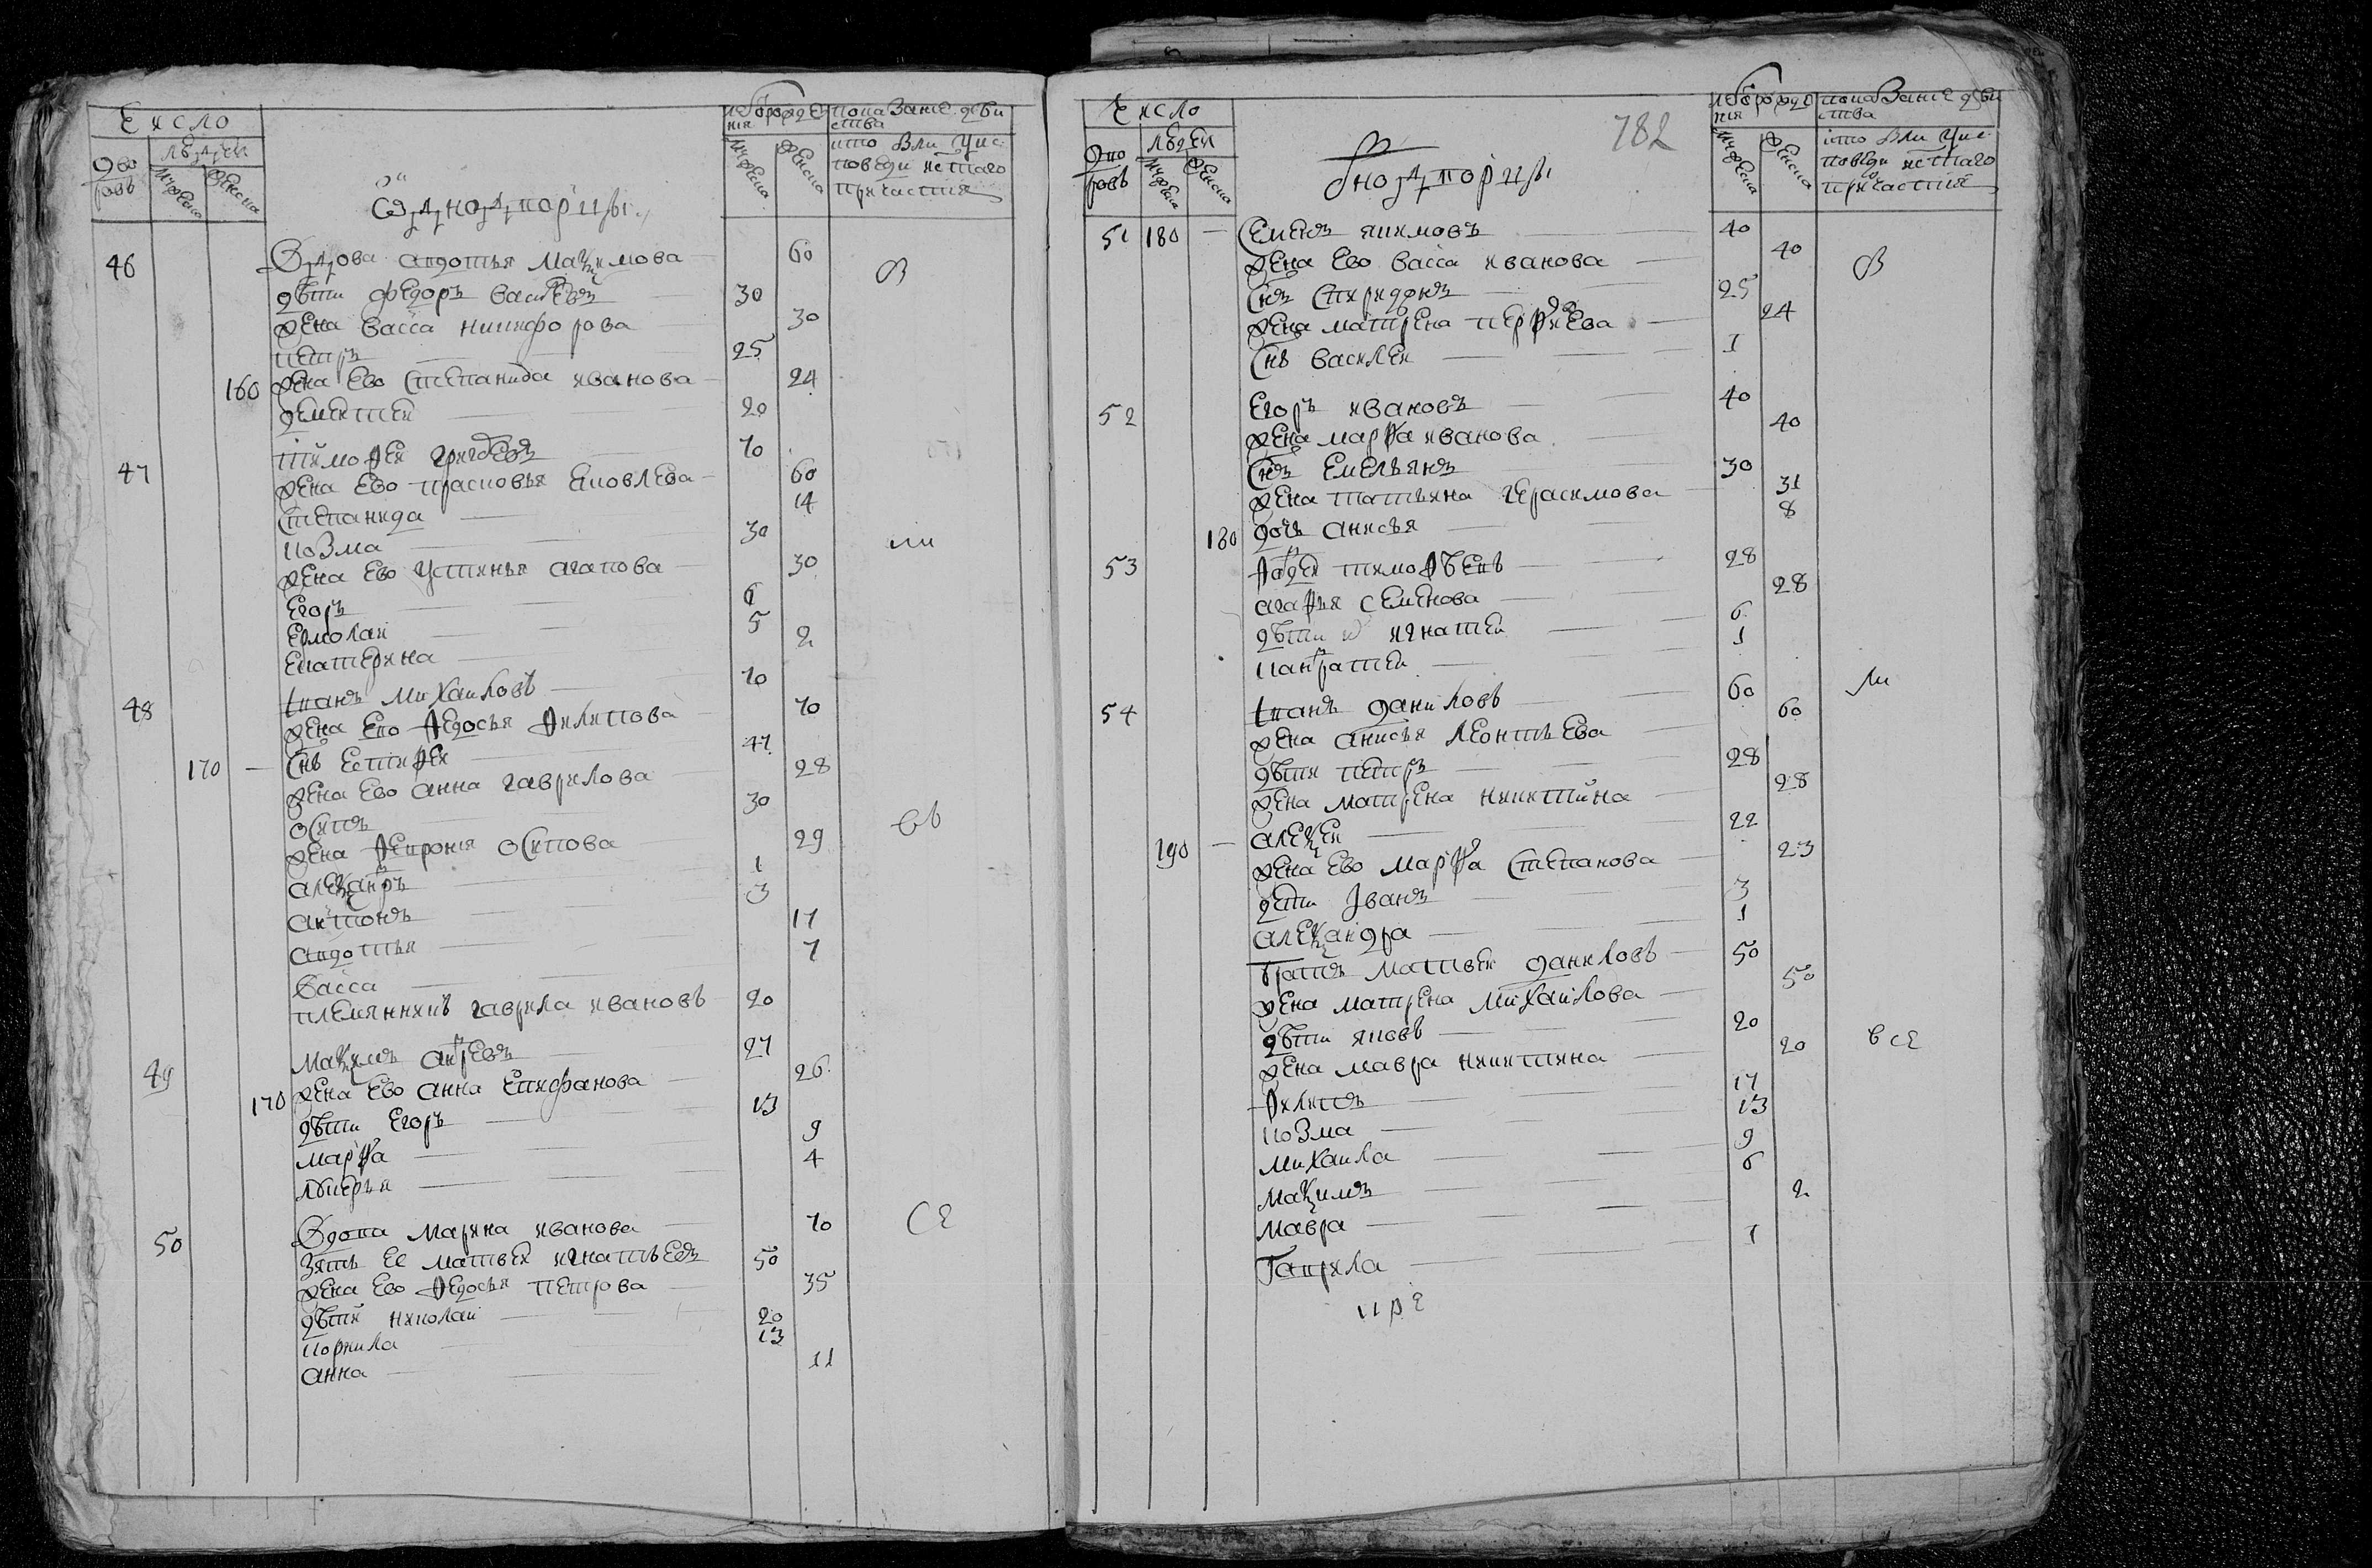 Число
дво
ровъ
людей
мужеска
женска
однодворцы
от рожде
ния
мужеска
женска
показание дѣй
ства
кто былъ у ис
поведи и с того
причастия
46 Вдова авдотья мазимова 60
дѣти федоръ василевъ 30
жена васса никифорова 30
петръ 25
160 жена ево степанида иванова 24
дементеи 20
47 тимофеи григоевъ 70
жена ево прасковья яковлева 60
степанида 14
козма 30
жена ево устинья агапова 30
егоръ 6
ермолаи 5
екатерина 2
48 иванъ михаиловъ 70
жена ево федосья филипова 70
170 снъ естифеи 47
жена ево анна гаврилова 28
осипъ 30
жена феврония осипова 29
алеѯандръ 1
антонъ 3
авдотья 17
васса 7
племянникъ гаврила ивановъ 20
49 маѯимъ андреевъ 27
170 жена ево анна епифанова 26
дѣти егоръ 13
марфа 9
лукерья 4
50 Вдова марина иванова 70
зять ее матвеи игнатьевъ 50
жена ево федосья петрова 35
дѣти николаи 20
корнила 13
анна 11
782
Число
дво
ровъ
людеи
мужеска
женска
однодворцы
от рожде
ния
мужеска
женска
показание дѣи
ства
кто былъ у ис
поведи и с того
причастия
51 180 семенъ якимовъ 40
жена ево васса иванова 40
снъ спиридонъ 25
жена матрена терѳиева 24
снъ василеи 1
52 егоръ ивановъ 40
жена марфа иванова 40
снъ емельянъ 30
жена татьяна герасимова 31
180 дочь анисья 8
53 фадеи тимофѣевъ 28
агафья семенова 28
дѣти игнатеи 6
панкратеи 1
54 иванъ даниловъ 60
жена анисья леонтьева 60
дѣти петръ 28
жена матрена никитина 28
190 алеѯеи 22
жена ево марфа степанова 23
дети иванъ 3
алеѯандра 1
братъ матвеи даниловъ 50
жена матрена михаилова 50
дѣти яковъ 20
жена мавра никитина 20
филипъ 17
козма 13
михаила 9
маѯимъ 6
мавра 2
гаврила 1